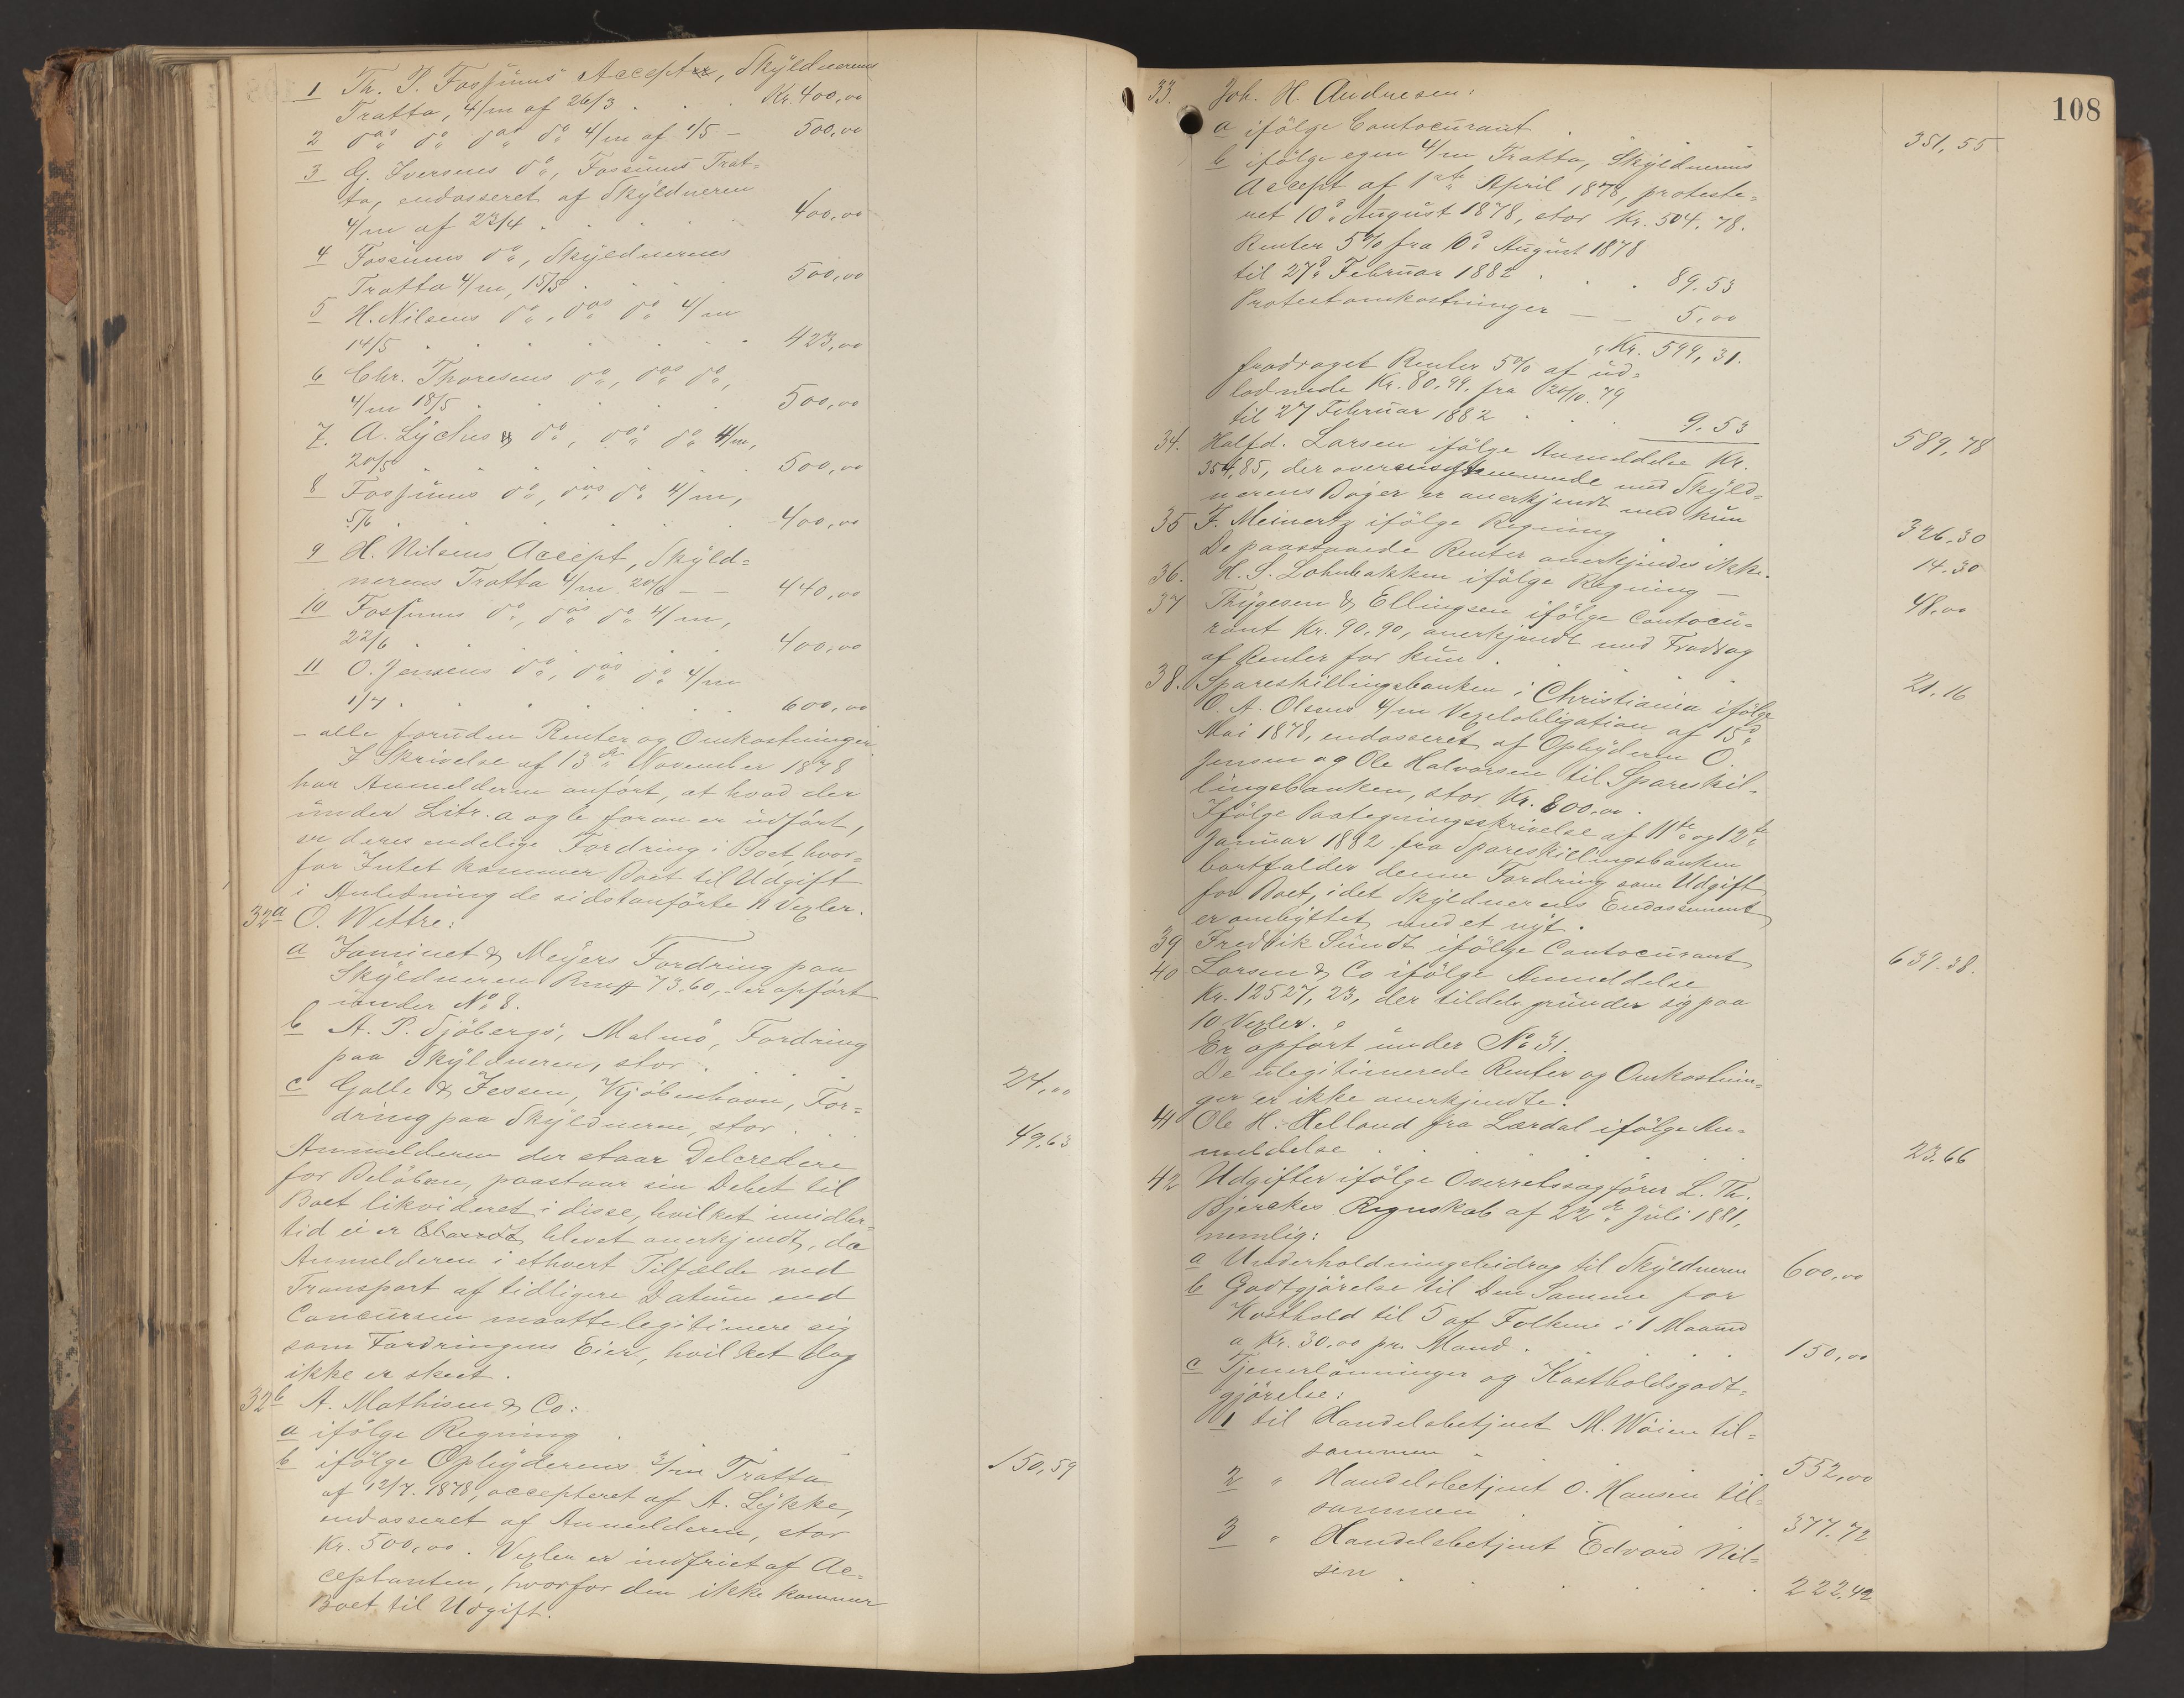 1 Th. P. Fossums Accept, Skyldnerens
Tratta, 4/m af 26/3 . . . Kr. 400,00
2 dos do dos do 4/m af 1/5 — 500,00
3 G. Iversens do, Fossums Trat-
ta, endosseret af Skyldneren
4/m af 23/4 . . . . 400,00
4 Fossums do, Skyldnerens
Tratta 4/m, 15/5 . . . . 500,00
5 H. Nilsens do, dos do 4/m
14/5 . . . . . . 423,00
6 Chr. Thoresens do, dos do,
4/m 18/5 . . . . . 500,00
7. A. Lyches do, dos do 4/m,
20/5 . . . . . . 500,00
8 Fossums do, dos do 4/m,
5/6 . . . . . . 400,00
9 H. Nilsens Accept, Skyld=
nerens Tratta 4/m. 20/6 — — 440,00
10 Fossums do, dos do 4/m,
22/6 . . . . . . 400,00
11 O. Jensens do, dos do 4/m
1/7 . . . . . . 600,00
— alle foruden Renter og Omkostninger.
I Skrivelse af 13de November 1878
har Anmelderen anført, at hvad der
under Litr. a og b foran er udført,
er deres endelige Fordring i Boet, hvor=
for Intet kommer Boet til Udgift
i Anledning de sidstanførte 11 Vexler.
32a O. Wettre:
a Jaminet & Meyers Fordring paa
Skyldneren Rm 73.60, - er opført
under No 8.
b A. P. Sjöbergs, Malmö, Fordring
paa Skyldneren, stor . . . 24,00
c Galle & Jessen, Kjöbenhavn, For=
dring paa Skyldneren, stor . . . 49.63
Anmelderen der staar Delcredere
for Belöbene, paastaar sin Debet til
Boet likvideret i disse, hvilket imidler=
tid ei er blevet anerkjendt, da
Anmelderen i ethvert Tilfælde ved
Transport af tidligere Datum end
Concursen maatte legitimere sig
som Fordringens Eier, hvilket dog
ikke er skeet.
32b A. Mathisen & Co:
a ifölge Regning . . . 150,59
b ifölge Opbyderens 3/m Tratta
af 12/7. 1878, accepteret af A. Lykke,
endosseret af Anmelderen, stor
Kr. 500,00. Vexlen er indfriet af Ac=
ceptanten, hvorfor den ikke kommer
Boet til Udgift.
108
33. Joh. H. Andresen:
a ifölge Contocurant . 351,55
b ifölge egen 4/m Tratta, Skyldnerens
Accept af 1ste April 1878, proteste=
ret 10d August 1878, stor Kr. 504.78.
Renter 5% fra 10d August 1878
til 27d Februar 1882 . . . 89.53
Protestomkostninger — — 5,00
Kr. 599,31.
fradraget Renter 5% af ud=
lodnede Kr. 80.99. fra 20/10.79
til 27 Februar 1882 . . . 9.53 589,78
34. Halfd. Larsen ifölge Anmeldelse Kr.
354,85, der overensstemmende med Skyld=
nerens Bøger er anerkjendt med kun 326.30
35 F. Meinertz ifölge Regning . . 14.30
De paastaaede Renter anerkjendes ikke.
36. H. S. Lohnbakken ifölge Regning — 48,00
37 Thygesen & Ellingsen ifölge Contocu=
rant Kr. 90,90, anerkjendt med Fradrag
af Renter for kun . . . 21,16
38. Spareskillingsbanken i Christiania ifölge
O. A. Olsens 4/m Vexelobligation af 15d
Mai 1878, endosseret af Opbyderen O.
Jensen og Ole Halvorsen til Spareskil=
lingsbanken, stor Kr. 800,00.
Ifölge Paategningsskrivelse af 11te og 12te
Januar 1882 fra Spareskillingsbanken
bortfalder denne Fordring som Udgift
for Boet, idet Skyldnerens Endossement
er ombyttet med et nyt.
39 Fredrik Sundt ifölge Contocurant 639.38.
40 Larsen & Co ifölge Anmeldelse
Kr. 12527,23, der tildels grunder sig paa
10 Vexler.
Er opfört under No 31.
De ulegitimerede Renter og Omkostnin=
ger er ikke anerkjendte.
41 Ole H. Helland fra Lærdal ifölge An=
meldelse . . . . . 23.66
42 Udgifter ifölge Overretssagförer L. Th.
Bjerckes Regnskab af 22de Juli 1881,
nemlig:
a Underholdningsbidrag til Skyldneren 600,00
b Godtgjörelse til Den Samme for
Kosthold til 5 af Folkene i 1 Maaned
a Kr. 30.00 pr. Mand . . . 150,00
c Tjenerlönninger og Kostholdsgodt=
gjörelse:
1 til Handelsbetjent M. Wöien til=
sammen . . . . 552,00
2 " Handelsbetjent O. Hansen til=
sammen . . . . 377.72
3 " Handelsbetjent Edvard Nil=
sen . . . . . 222,42